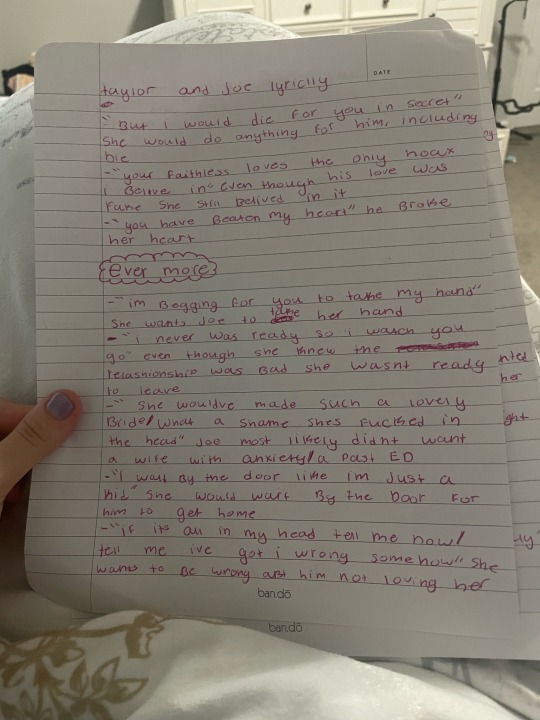 DATE
taylor and Joe lyriclly
"But I would die for you in secret"
She would do anything for him, including
Die
-"your faithless loves the only hoax
I Belive in" even though his love was
fake she still Belived in it
-"you have Beaten my heart" he Broke
her heart
ever more
-"im Begging for you to take my hand"
She wants Joe to take her hand
-"i never was ready so i wach you
go" even though she knew the
relashionship was Bad she wasnt ready
to leave
-"She wouldve made such a lovely
Bride/what a shame shes fucked in
the head" Joe most likely didnt want
a wife with anxiety/a past ED
-"I wait By the door like Im Just a
kid" she would wait By the Door for
him to get home
-"if its all in my head tell me now/
tell me ive got i wrong somehow" she
wants to Be wrong abt him not loving her
ban.dō
ban.dō
nted
her
ght